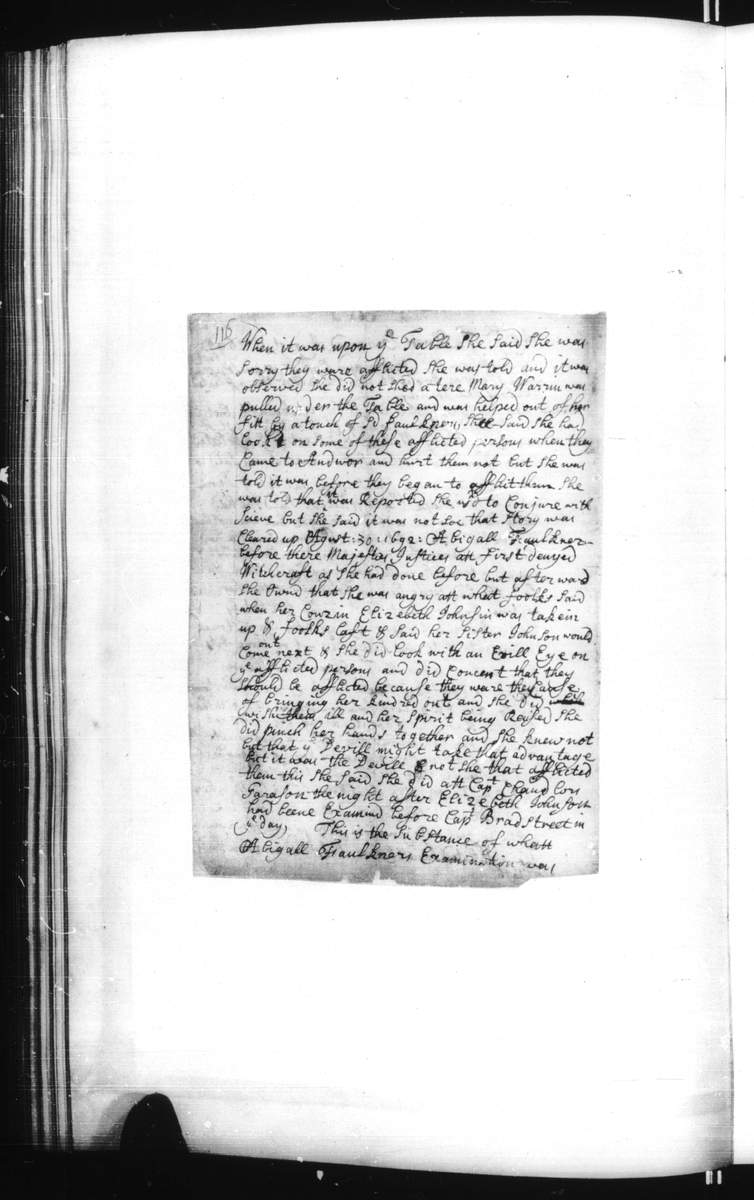 116
When it was upon ye Table She Said She was
Sorry they ware afflicted She was told and it was
observed she did not Shed a tere Mary Warrin was
pulled under the Table and was helped out of her
fitt by a touch of Sd Faulkner, Shee Said She had
lookt on some of these afflicted persons when they
Came to Andivor and hurt them not but She was
told it was before they began to afflict them She
was told that it was Reported She usd to Conjure with
Scieve but she said it was not soe that Story was
Cleared up Agust: 30: 1692: Abigall Faulkner
before there Majesties Justices att first denyed
Witchcraft as She had done before but afterward
She Ownd that She was angry att what foolks Said
when her Couzin Elizebeth Johnsin was taken
up & foolks laft & Said her sister Johnson would
Come out next & She did look with an Evill Eye on
ye afflicted persons and did Concent that they
Should be afflicted because they ware they cause
of bringing her kindred out and She did
wish them ill and her Spirit being Reysed She
did pinch her hands together and She knew not
but that ye Devill might take that advantage
but it was the Devill & not she that afflicted
them this She said she did att Capt Chandlors
Garason the night after Elizebeth Johnson
had beene Examind before Capt Bradstreet in
ye day, This is the Substance of whatt
Abigall Faulkners Examination was